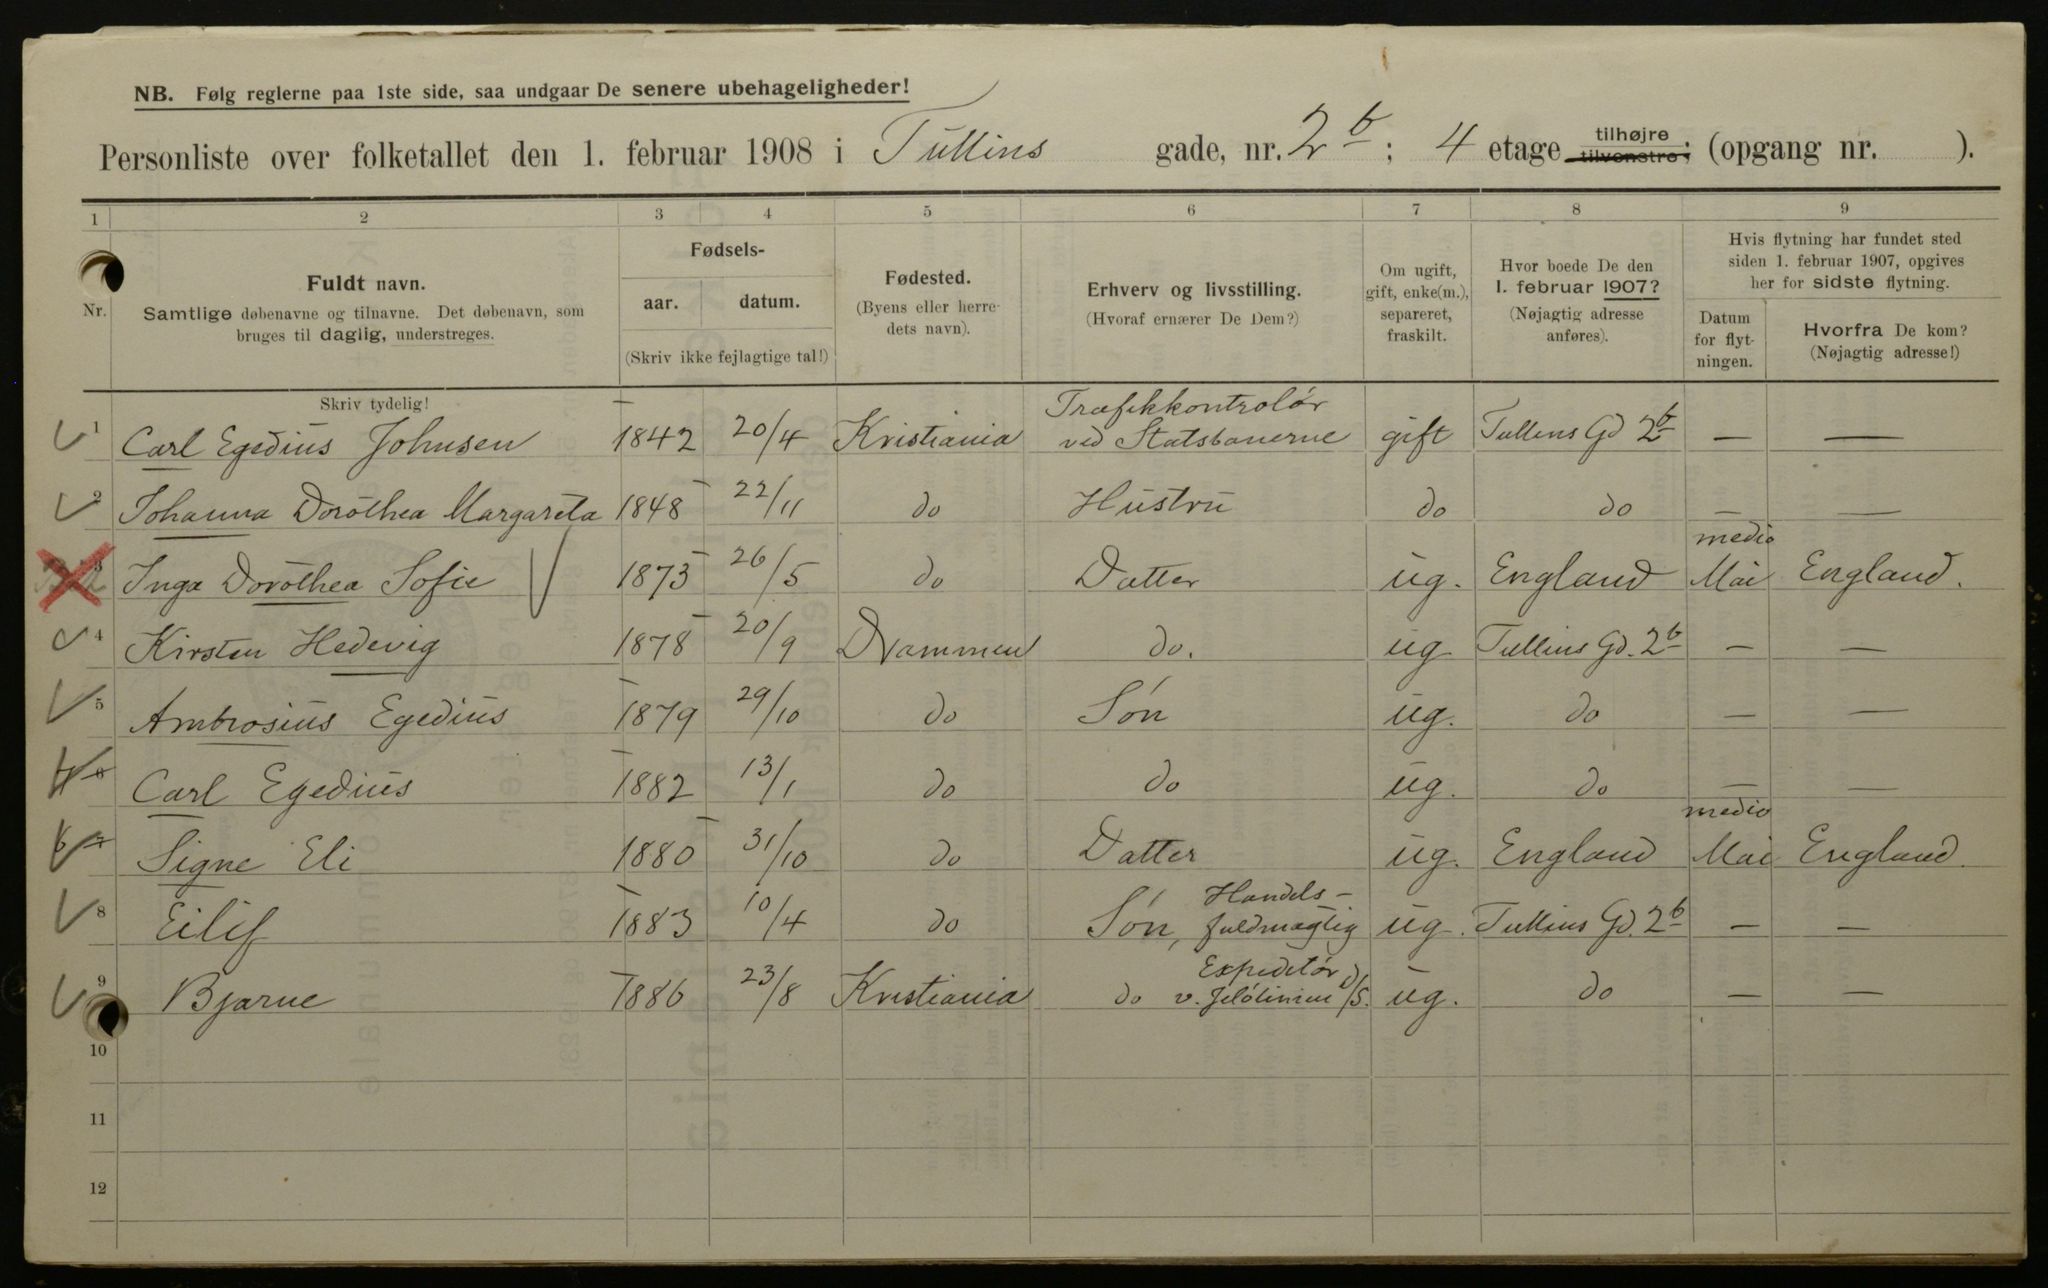 NB. Følg reglerne paa 1ste side, saa undgaar De senere ubehageligheder!
Personliste over folketallet den 1. februar 1908 i Tullins gade, nr. 2b ; 4 etage tilhøjre tilvenstre; (opgang nr. ).
1 2 3 4 5 6 7 8 9
Nr.
Fuldt navn.
Samtlige døbenavne og tilnavne. Det døbenavn, som
bruges til daglig, understreges.
Skriv tydelig!
Fødsels-
aar. datum.
(Skriv ikke fejlagtige tal!)
Fødested.
(Byens eller herre-
dets navn).
Erhverv og livsstilling.
(Hvoraf ernærer De Dem?)
Om ugift,
gift, enke(m.),
separeret,
fraskilt.
Hvor boede De den
1. februar 1907?
(Nøjagtig adresse
anføres).
Hvis flytning har fundet sted
siden 1. februar 1907, opgives
her for sidste flytning.
Datum
for flyt-
ningen.
Hvorfra De kom?
(Nøjagtig adresse!)
Trafikkontrolör
1 Carl Egedius Johnsen 1842 20/4 Kristiania ved Statsbanerne gift Tullins Gd 2b — —
2 Johanna Dorothea Margareta 1848 22/11 do Hustru do do — —
medio
3 Inga Dorothea Sofie 1873 26/5 do Datter ug. England Mai England.
4 Kirsten Hedevig 1878 20/9 Drammen do. ug Tullins Gd. 2b — —
5 Ambrosius Egedius 1879 29/10 do Sön ug. do — —
6 Carl Egedius 1882 13/1 do do ug. do — —
medio
7 Signe Eli 1880 31/10 do Datter ug. England Mai England.
Handels-
8 Eilif 1883 10/4 do Sön, fuldmægtig ug. Tullins Gd. 2b — —
Expeditör
9 Bjarne 1886 23/8 Kristiania do v. Jelölinien D/S. ug. do — —
10
11
12